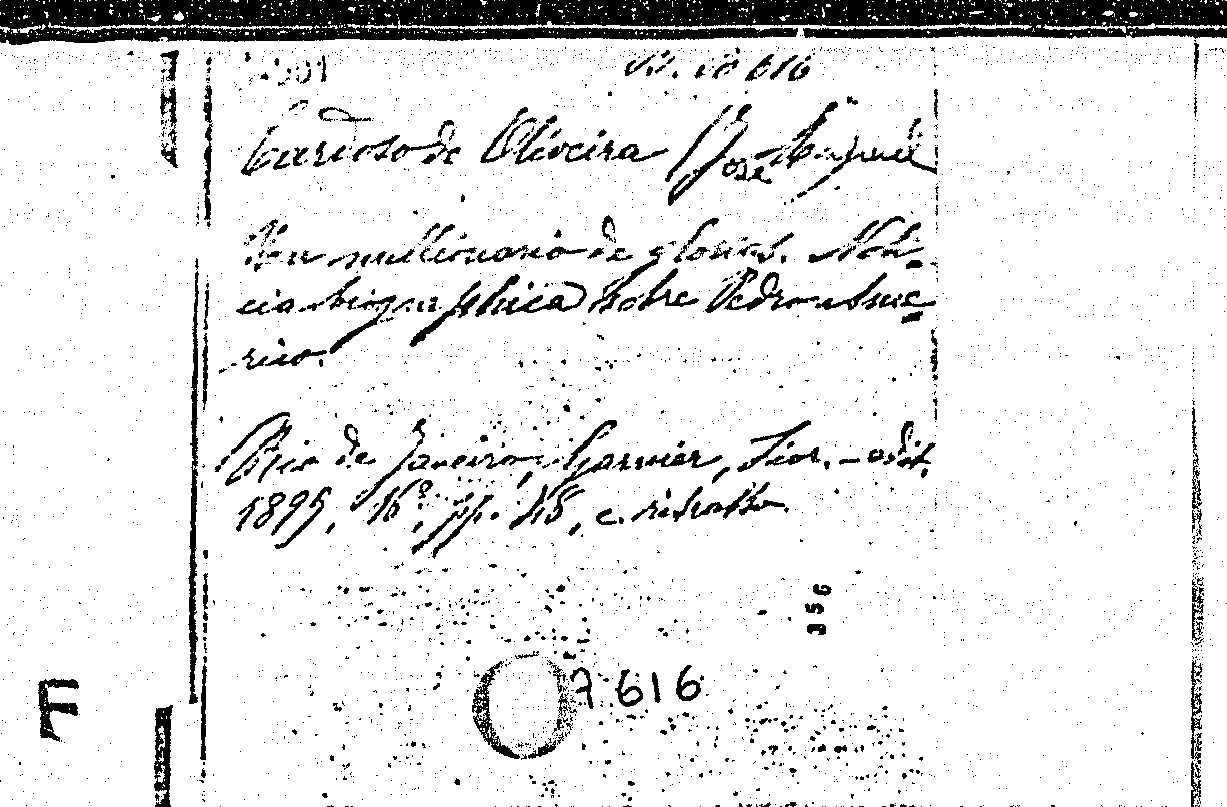 10 616
Cardoso de Oliveira (José Manuel
Um millionario de glorias. Noti-
cia biographica sobre Pedro Ame-
rico.
Rio de Janeiro, Garnier, Livr.-edit.
1899, 16°, pp. 48, c. ritratto
356
7616
F